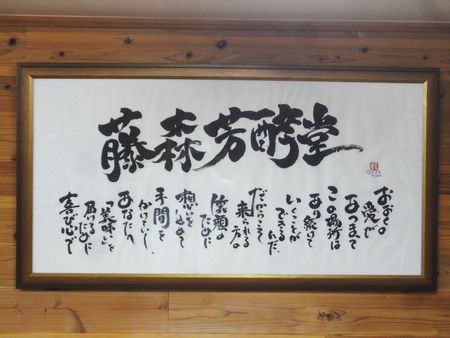 藤森芳酵堂
愛が
あつまって
この場所は
あり続けて
いくことが
できるんだ
だからこそ
来られる方の
笑顔の
ために
想いを
込めて
手間を
かけていく
あなたの
「美味い」
ために
喜び心で